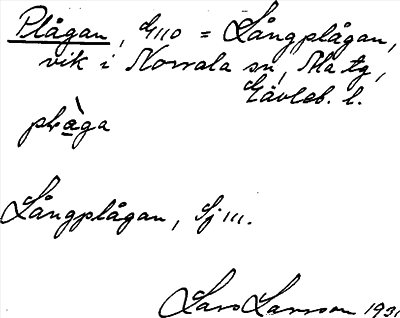 Plågan, G110 = Långplågan,
vik i Norrala sn, Ala tg,
Gävleb. l.
Långplågan, Sj 111.
Lars Larsson